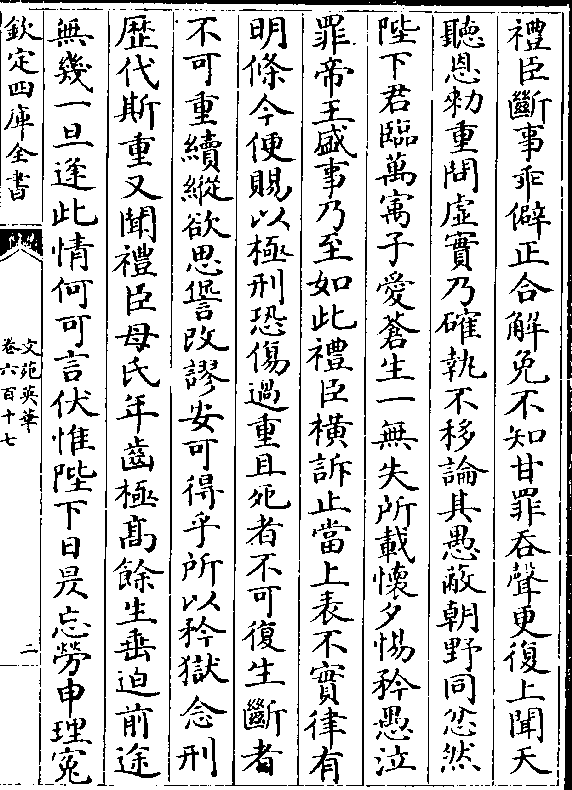 禮臣斷事乖僻正合解免不知甘罪吞聲更復上聞天
聽恩勑重問虛實乃確執不移論其愚蔽朝野同忿然
陛下君臨萬寓子愛蒼生一無失所載懷夕惕矜愚泣
罪帝王盛事乃至如此禮臣橫訴止當上表不實律有
明條今便賜以極刑恐傷過重且死者不可復生斷者
不可重續縱欲思諐改謬安可得乎所以矜獄念刑
歴代斯重又聞禮臣母氏年齒極髙餘生垂迫前途
無幾一旦逢此情何可言伏惟陛下日昃忘勞申理寃
欽定四庫全書
文苑英華
卷六百十七
二